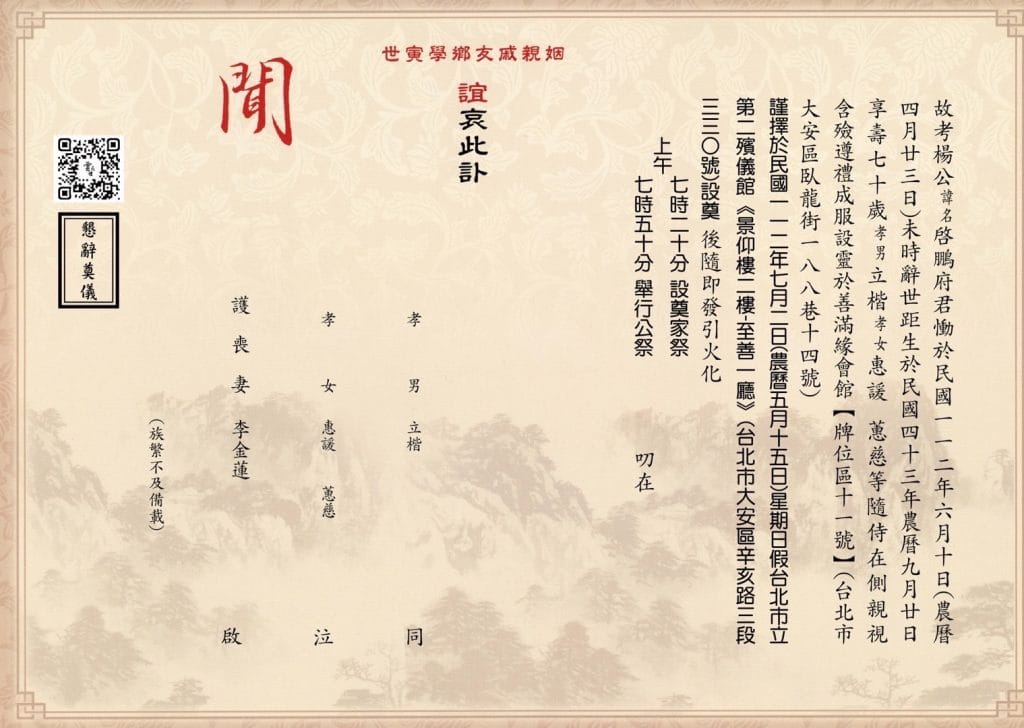 故考楊公諱名啓鵬府君慟於民國一一二年六月十日(農曆
四月廿三日)未時辭世距生於民國四十三年農曆九月廿日
享壽七十歲孝男立楷孝女惠諼 蕙慈等隨侍在側親視
含殮遵禮成服設靈於善滿緣會館【牌位區十一號】(台北市
大安區臥龍街一八八巷十四號)
謹擇於民國一一二年七月二日(農曆五月十五日)星期日假台北市立
第二殯儀館《景仰樓二樓-至善一廳》(台北市大安區辛亥路三段
三三〇號)設奠 後隨即發引火化
上午
七時二十分 設奠家祭
七時五十分 舉行公祭
叨在
姻親戚友鄉學寅世
誼哀此訃
聞
孝男 立楷 同
孝女 惠諼 蕙慈 泣
護喪妻 李金蓮 啟
(族繁不及備載)
懇辭奠儀